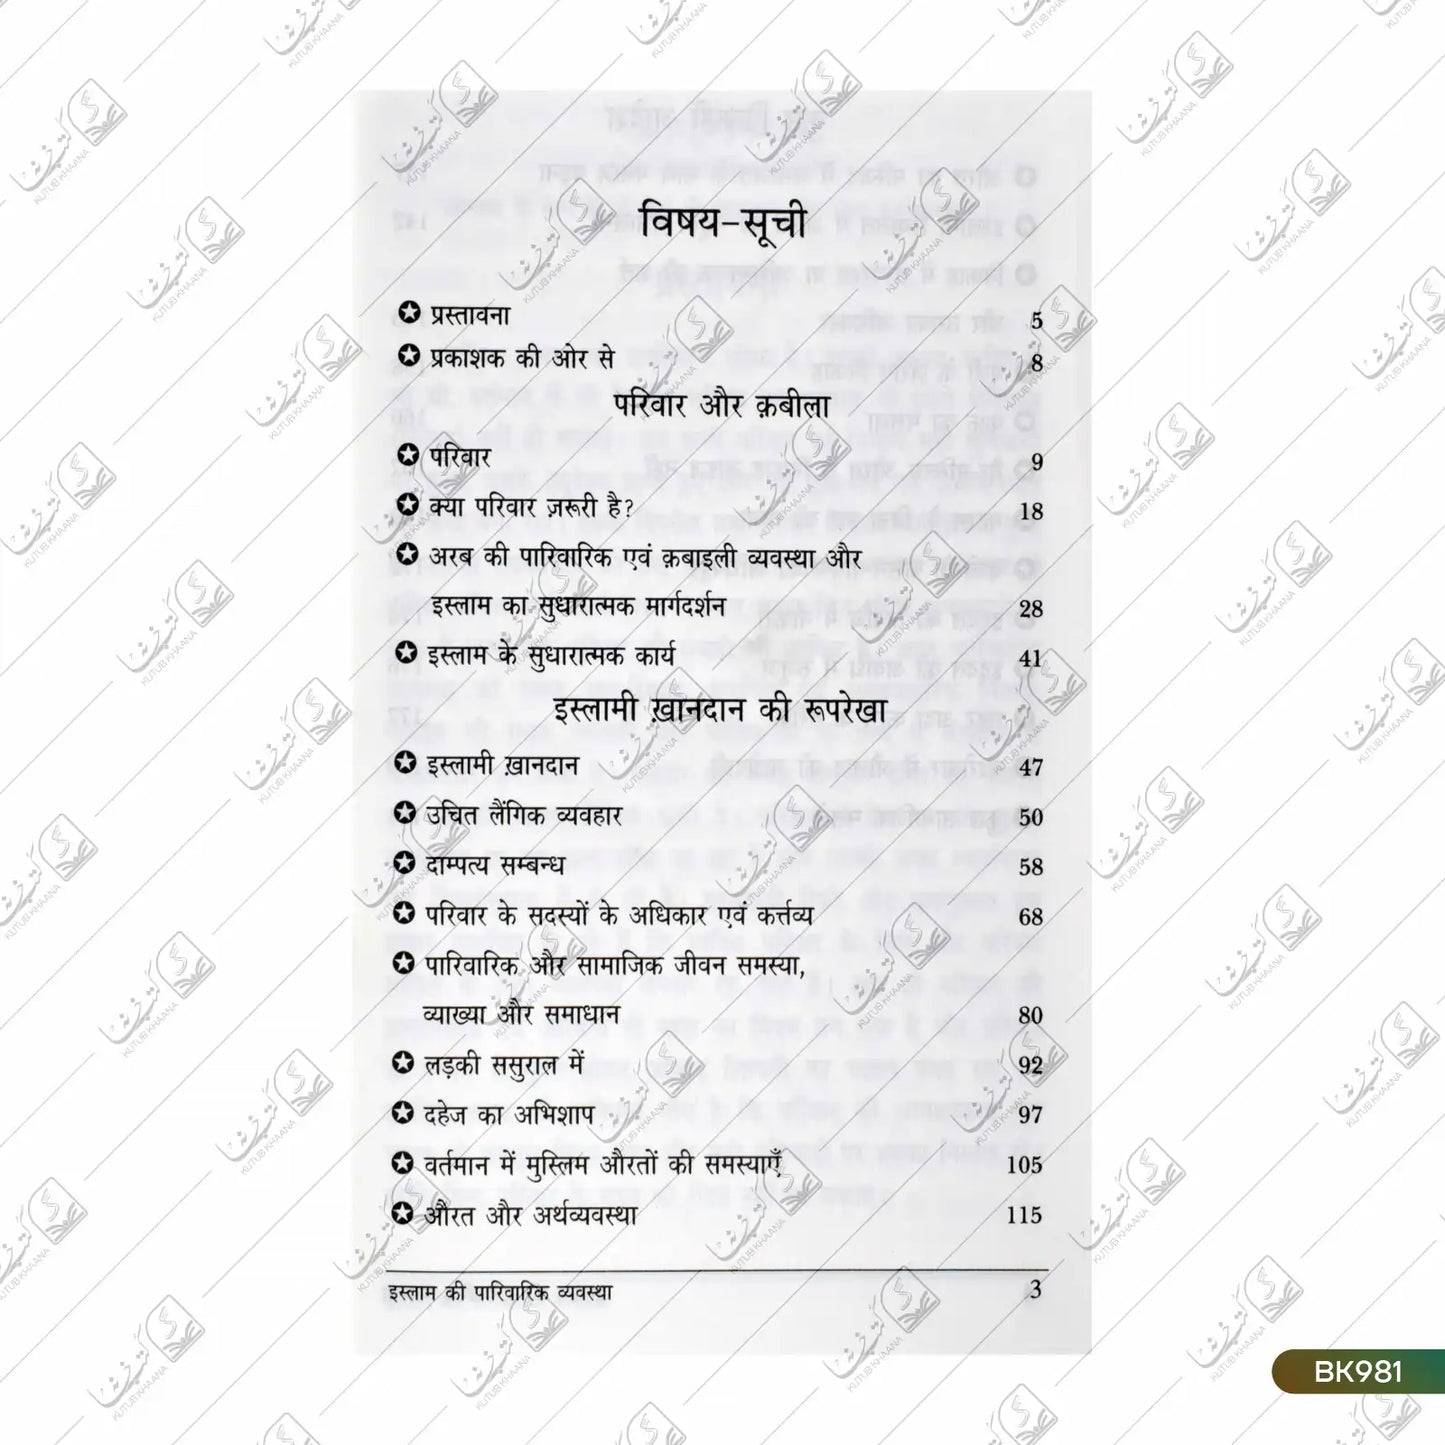 विषय-सूची
✪ प्रस्तावना 5
✪ प्रकाशक की ओर से 8
परिवार और क़बीला
✪ परिवार 9
✪ क्या परिवार ज़रूरी है? 18
✪ अरब की पारिवारिक एवं क़बाइली व्यवस्था और
इस्लाम का सुधारात्मक मार्गदर्शन 28
✪ इस्लाम के सुधारात्मक कार्य 41
इस्लामी ख़ानदान की रूपरेखा
✪ इस्लामी ख़ानदान 47
✪ उचित लैंगिक व्यवहार 50
✪ दाम्पत्य सम्बन्ध 58
✪ परिवार के सदस्यों के अधिकार एवं कर्त्तव्य 68
✪ पारिवारिक और सामाजिक जीवन समस्या,
व्याख्या और समाधान 80
✪ लड़की ससुराल में 92
✪ दहेज का अभिशाप 97
✪ वर्तमान में मुस्लिम औरतों की समस्याएँ 105
✪ औरत और अर्थव्यवस्था 115
इस्लाम की पारिवारिक व्यवस्था 3
BK981
KUTUB KHAANA